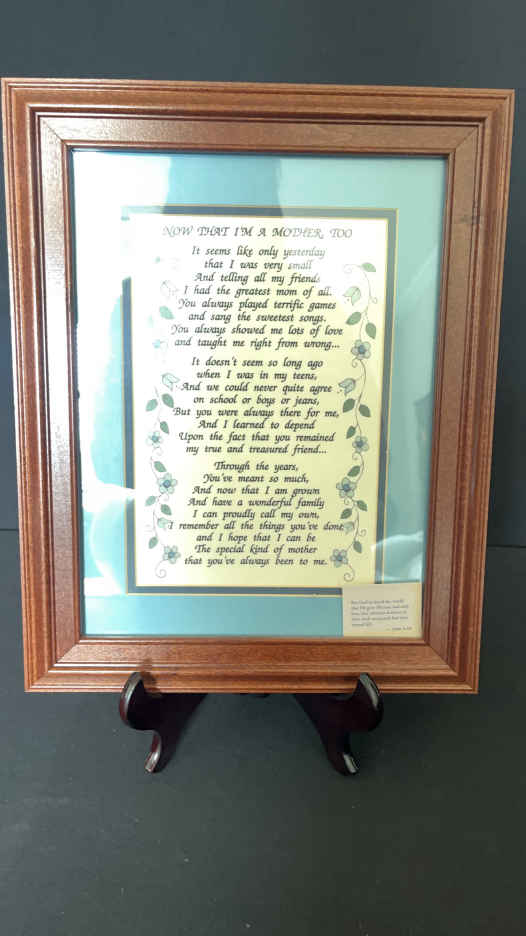 NOW THAT I'M A MOTHER, TOO
It seems like only yesterday
that I was very small
And telling all my friends
I had the greatest mom of all.
You always played terrific games
and sang the sweetest songs.
You always showed me lots of love
and taught me right from wrong...
It doesn't seem so long ago
when I was in my teens,
And we could never quite agree
on school or boys or jeans,
But you were always there for me,
And I learned to depend
Upon the fact that you remained
my true and treasured friend...
Through the years,
You've meant so much,
And now that I am grown
And have a wonderful family
I can proudly call my own,
I remember all the things you've done,
and I hope that I can be
The special kind of mother
that you've always been to me.